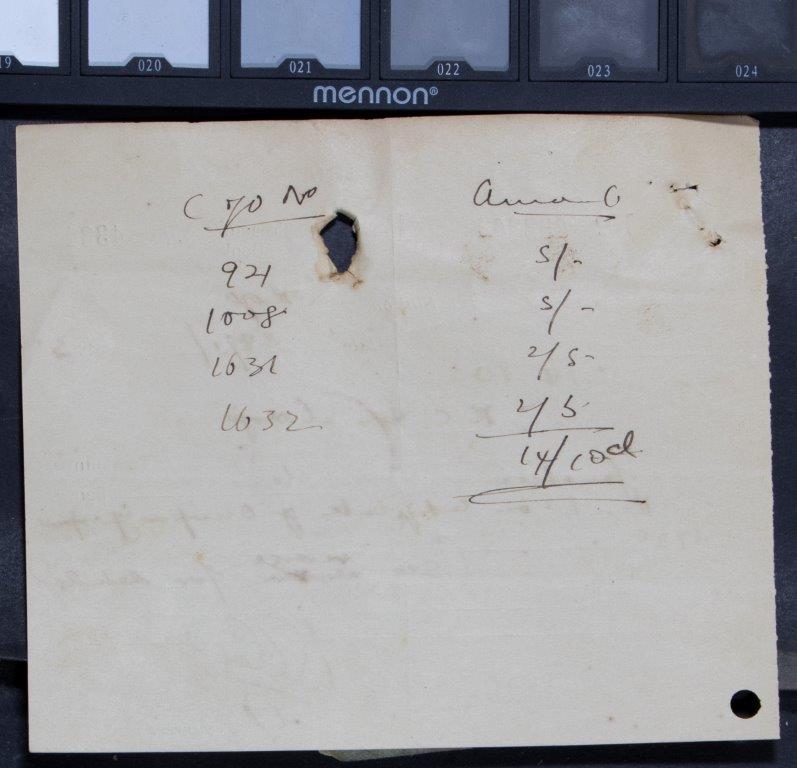 19 020 021 022 023 024
mennon®
C/O No Amount
921 5/-
1008 5/-
1631 2/5-
1632 2/5
14/10d